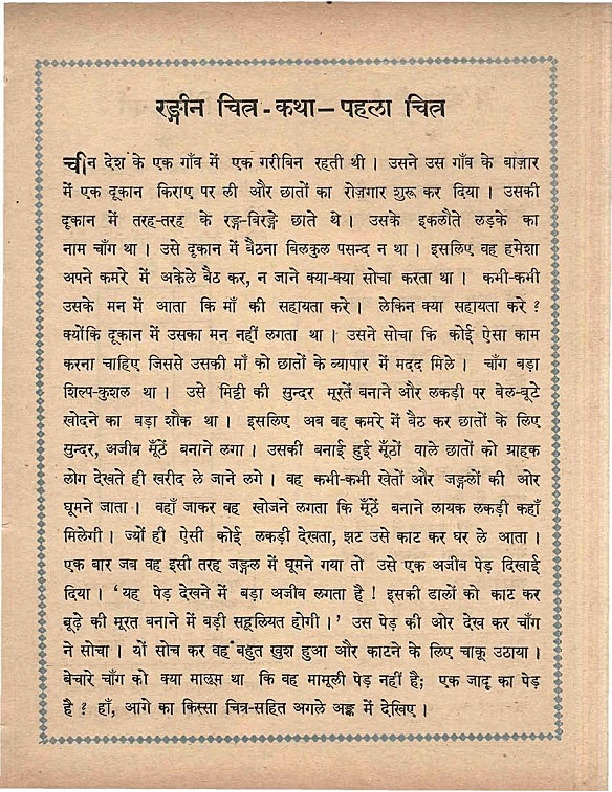 रङ्गीन चित्र - कथा — पहला चित्र
चीन देश के एक गाँव में एक गरीबिन रहती थी । उसने उस गाँव के बाज़ार
में एक दूकान किराए पर ली और छातों का रोज़गार शुरू कर दिया । उसकी
दूकान में तरह-तरह के रङ्ग-बिरङ्गे छाते थे । उसके इकलौते लड़के का
नाम चाँग था । उसे दूकान में बैठना बिलकुल पसन्द न था । इसलिए वह हमेशा
अपने कमरे में अकेले बैठ कर, न जाने क्या-क्या सोचा करता था । कभी-कभी
उसके मन में आता कि माँ की सहायता करे । लेकिन क्या सहायता करे ?
क्योंकि दूकान में उसका मन नहीं लगता था । उसने सोचा कि कोई ऐसा काम
करना चाहिए जिससे उसकी माँ को छातों के व्यापार में मदद मिले । चाँग बड़ा
शिल्प-कुशल था । उसे मिट्टी की सुन्दर मूरतें बनाने और लकड़ी पर बेल-बूटे
खोदने का बड़ा शौक था । इसलिए अब वह कमरे में बैठ कर छातों के लिए
सुन्दर, अजीब मूँठें बनाने लगा । उसकी बनाई हुई मूँठों वाले छातों को ग्राहक
लोग देखते ही खरीद ले जाने लगे । वह कभी-कभी खेतों और जङ्गलों की ओर
घूमने जाता । वहाँ जाकर वह खोजने लगता कि मूँठें बनाने लायक लकड़ी कहाँ
मिलेगी । ज्यों ही ऐसी कोई लकड़ी देखता, झट उसे काट कर घर ले आता ।
एक बार जब वह इसी तरह जङ्गल में घूमने गया तो उसे एक अजीब पेड़ दिखाई
दिया । ' यह पेड़ देखने में बड़ा अजीब लगता है ! इसकी डालों को काट कर
बूढ़े की मूरत बनाने में बड़ी सहूलियत होगी । ' उस पेड़ की ओर देख कर चाँग
ने सोचा । यों सोच कर वह बहुत खुश हुआ और काटने के लिए चाकू उठाया ।
बेचारे चाँग को क्या मालूम था कि वह मामूली पेड़ नहीं है; एक जादू का पेड़
है ? हाँ, आगे का किस्सा चित्र-सहित अगले अङ्क में देखिए ।